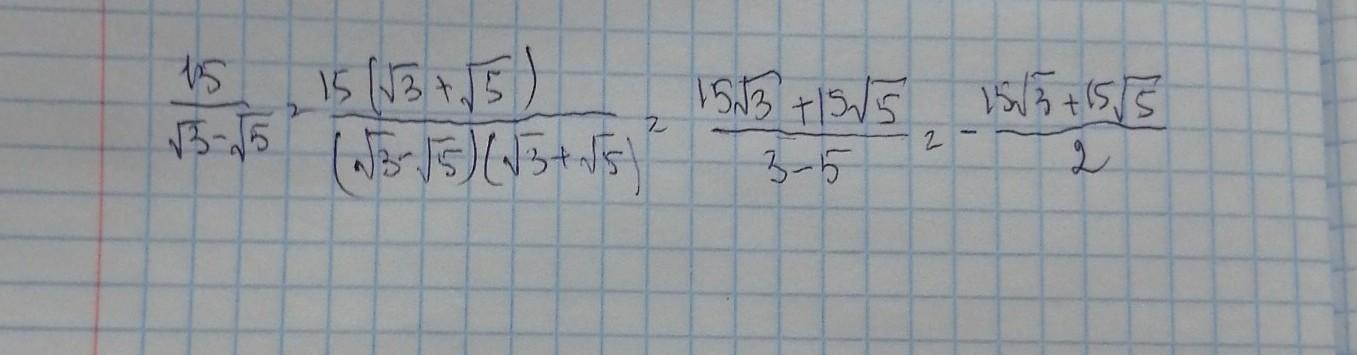 15/(√3-√5) = 15(√3+√5)/((√3-√5)(√3+√5)) = (15√3+15√5)/(3-5) = -(15√3+15√5)/2